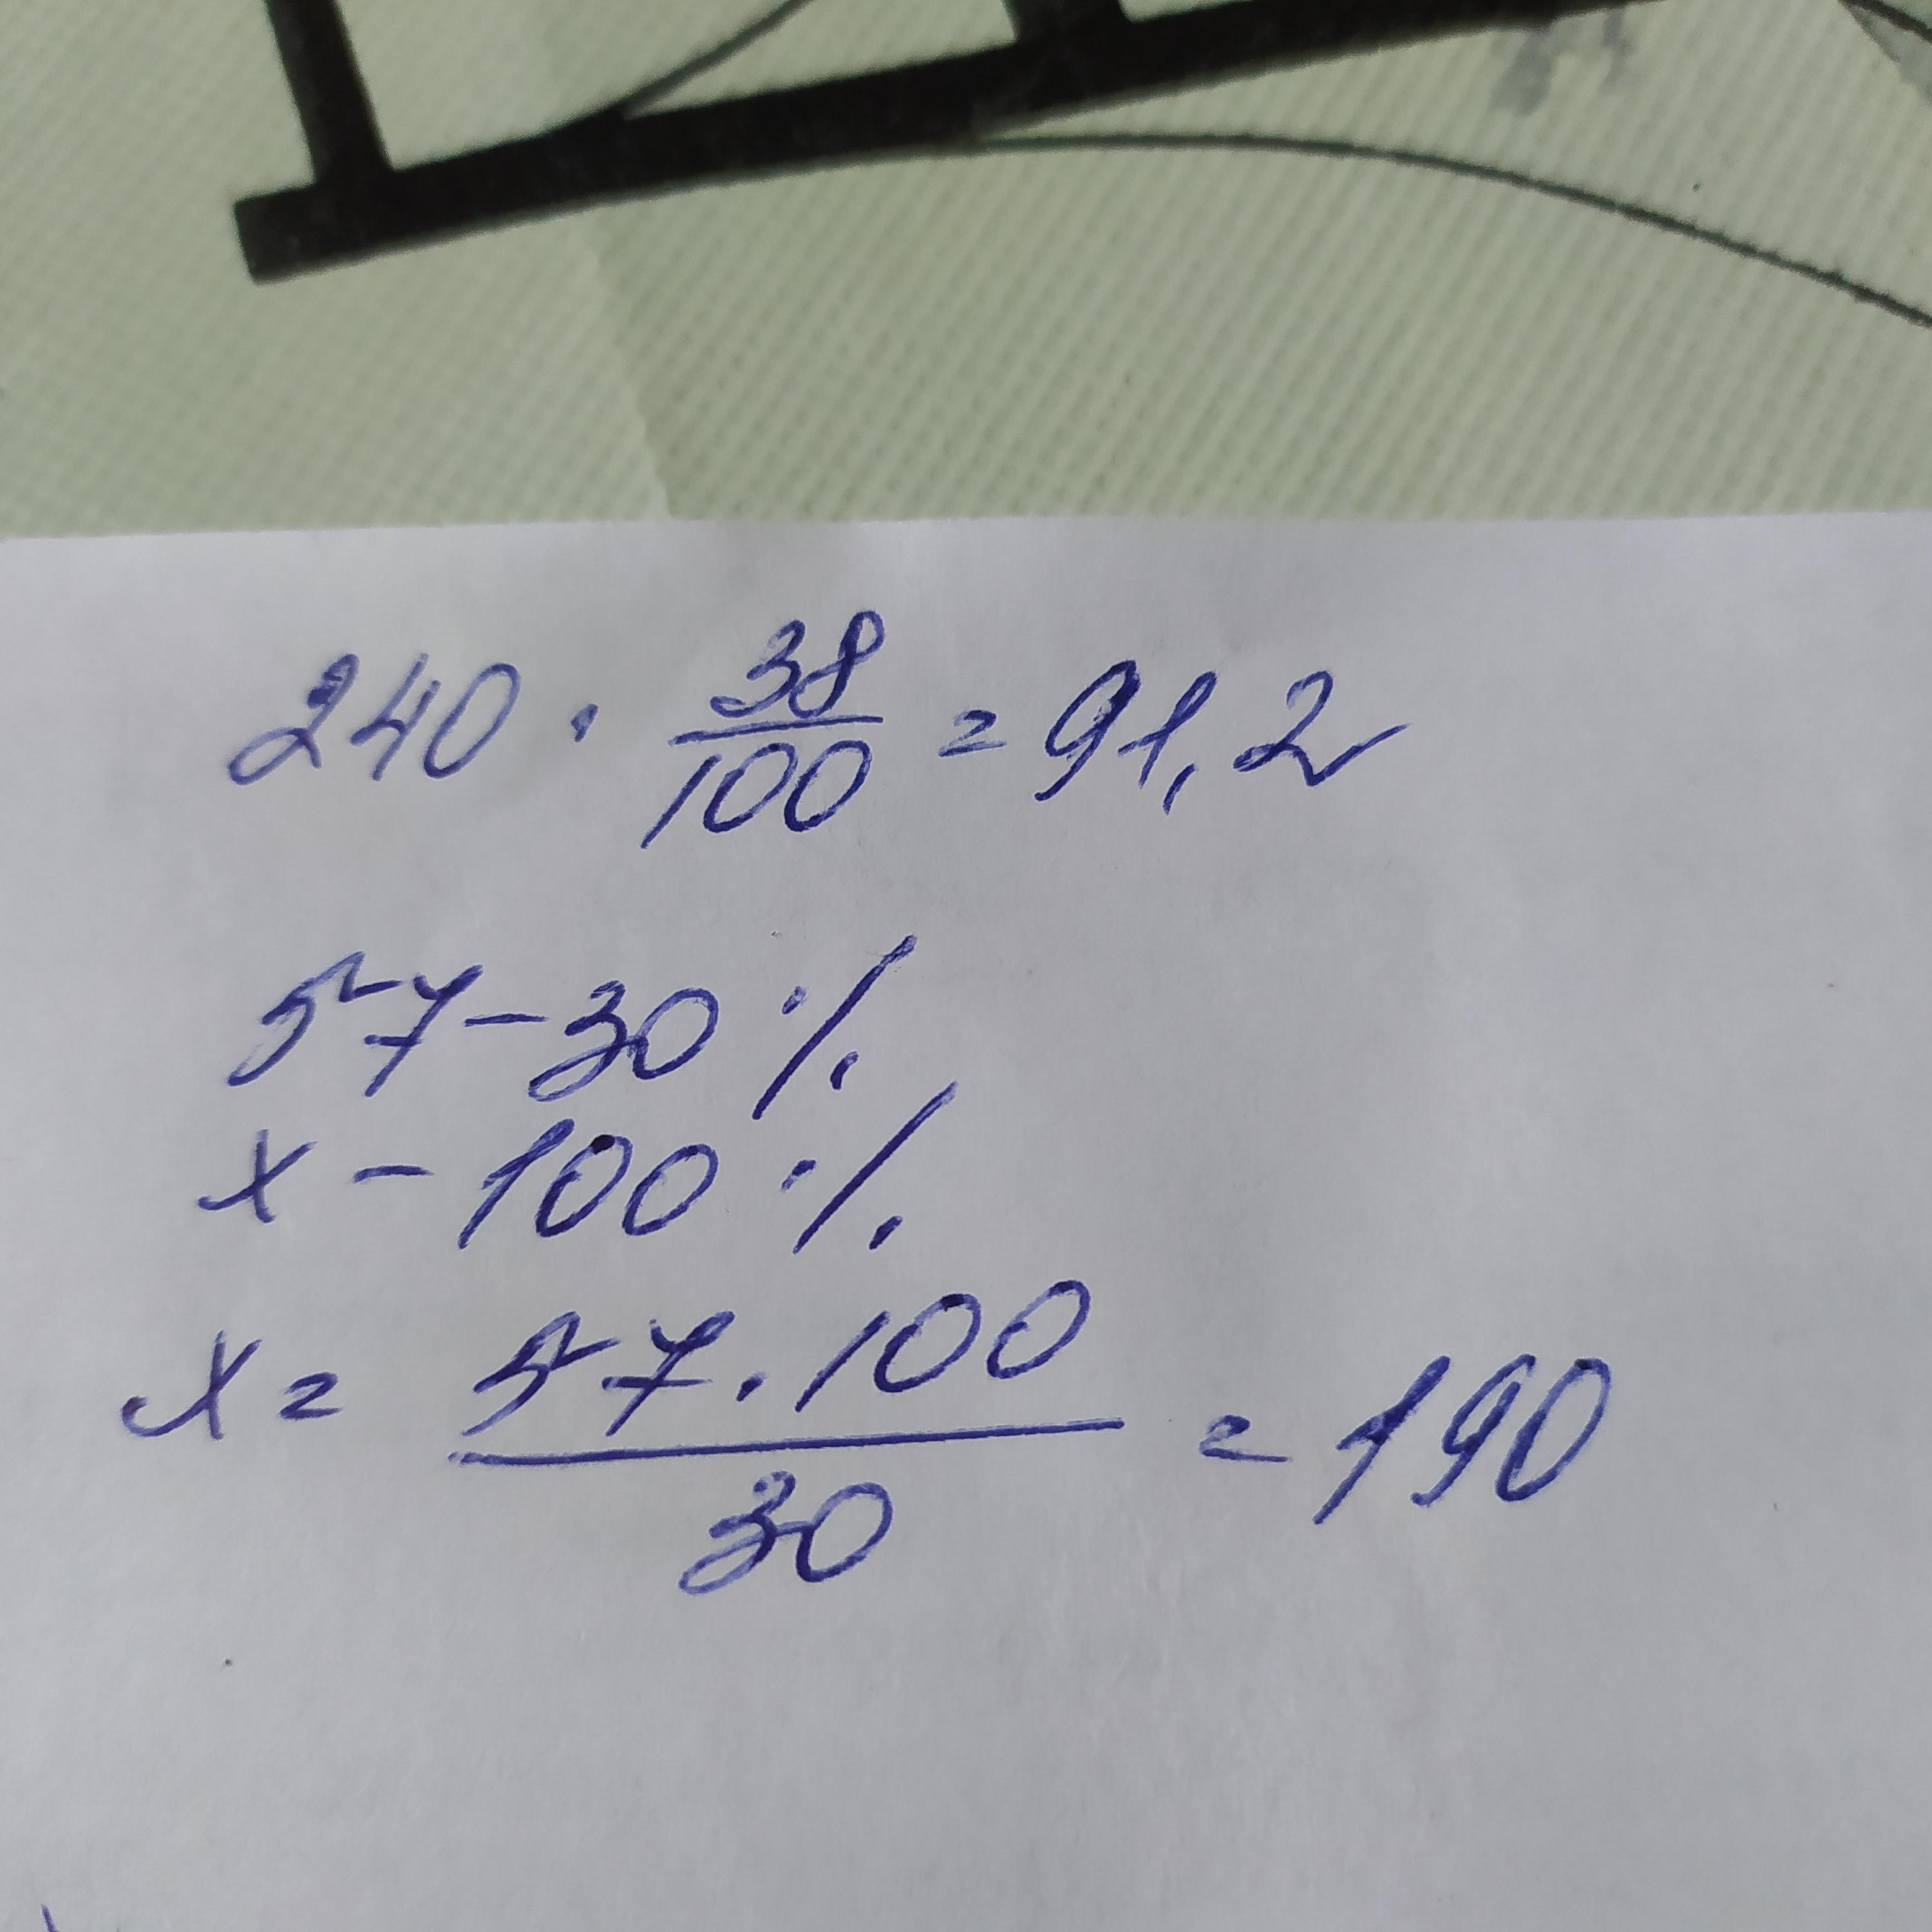 240 · 38/100 = 91,2
57 - 30 %
x - 100 %
x = 57 · 100/30 = 190